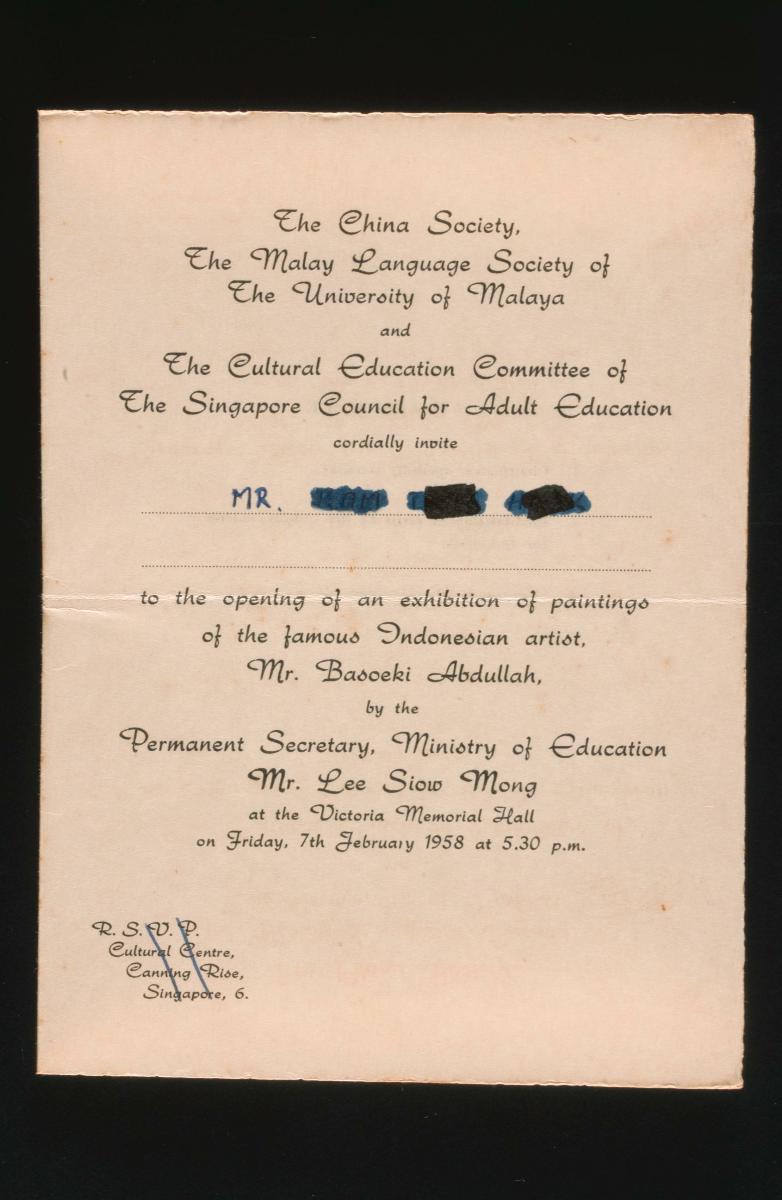 The China Society,
The Malay Language Society of
The University of Malaya
and
The Cultural Education Committee of
The Singapore Council for Adult Education
cordially invite
MR.
to the opening of an exhibition of paintings
of the famous Indonesian artist,
Mr. Basoeki Abdullah,
by the
Permanent Secretary, Ministry of Education
Mr. Lee Siow Mong
at the Victoria Memorial Hall
on Friday, 7th February 1958 at 5.30 p.m.
R. S. V. P.
Cultural Centre,
Canning Rise,
Singapore, 6.